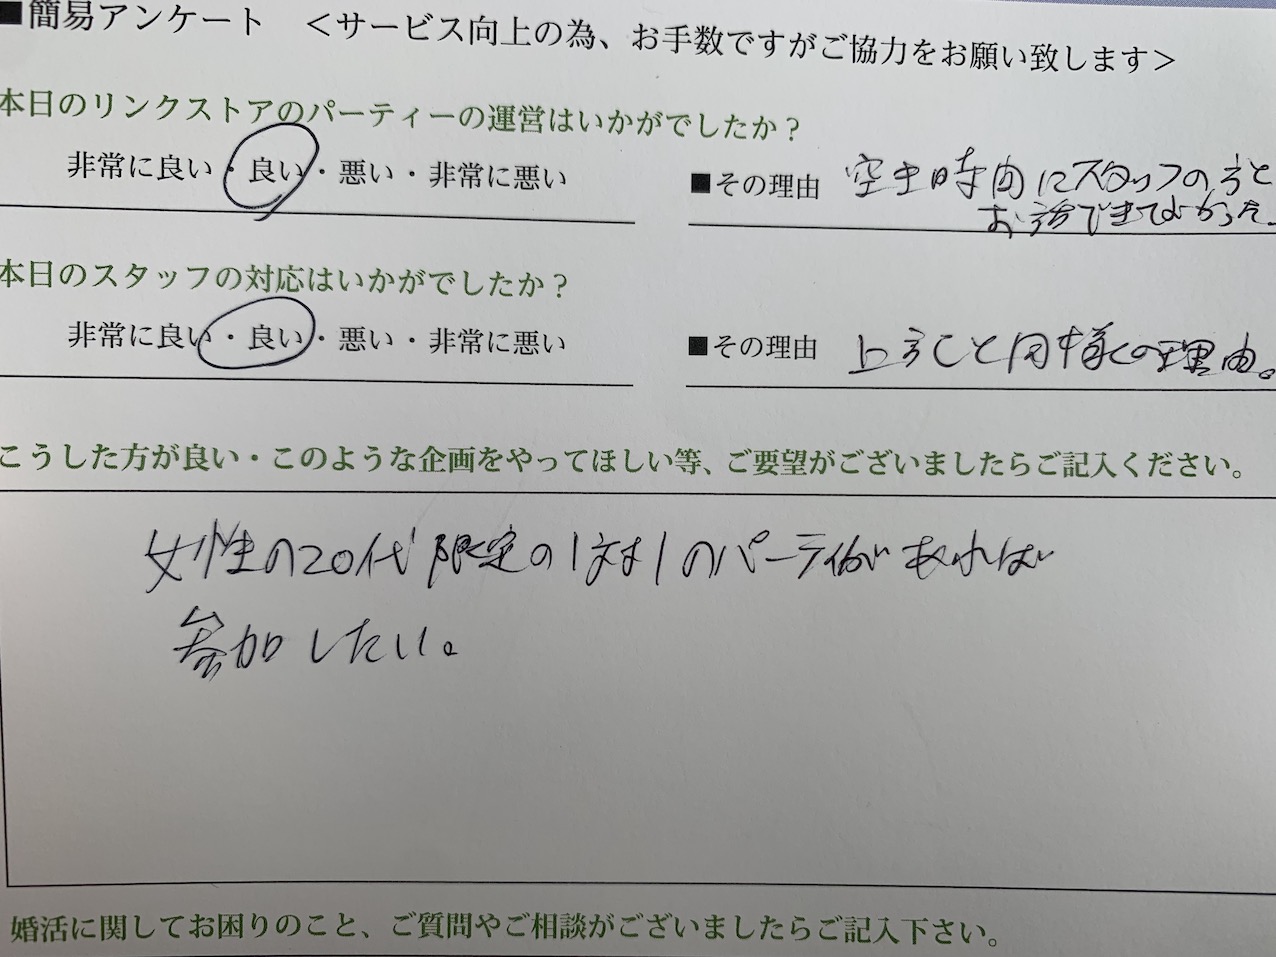 ■簡易アンケート ＜サービス向上の為、お手数ですがご協力をお願い致します＞
本日のリンクストアのパーティーの運営はいかがでしたか？
非常に良い・良い・悪い・非常に悪い
■その理由 空き時間にスタッフの方と
お話できてよかった。
本日のスタッフの対応はいかがでしたか？
非常に良い・良い・悪い・非常に悪い
■その理由 上と同様の理由。
こうした方が良い・このような企画をやってほしい等、ご要望がございましたらご記入ください。
女性の20代限定の1対1のパーティがあれば
参加したい。
婚活に関してお困りのこと、ご質問やご相談がございましたらご記入下さい。